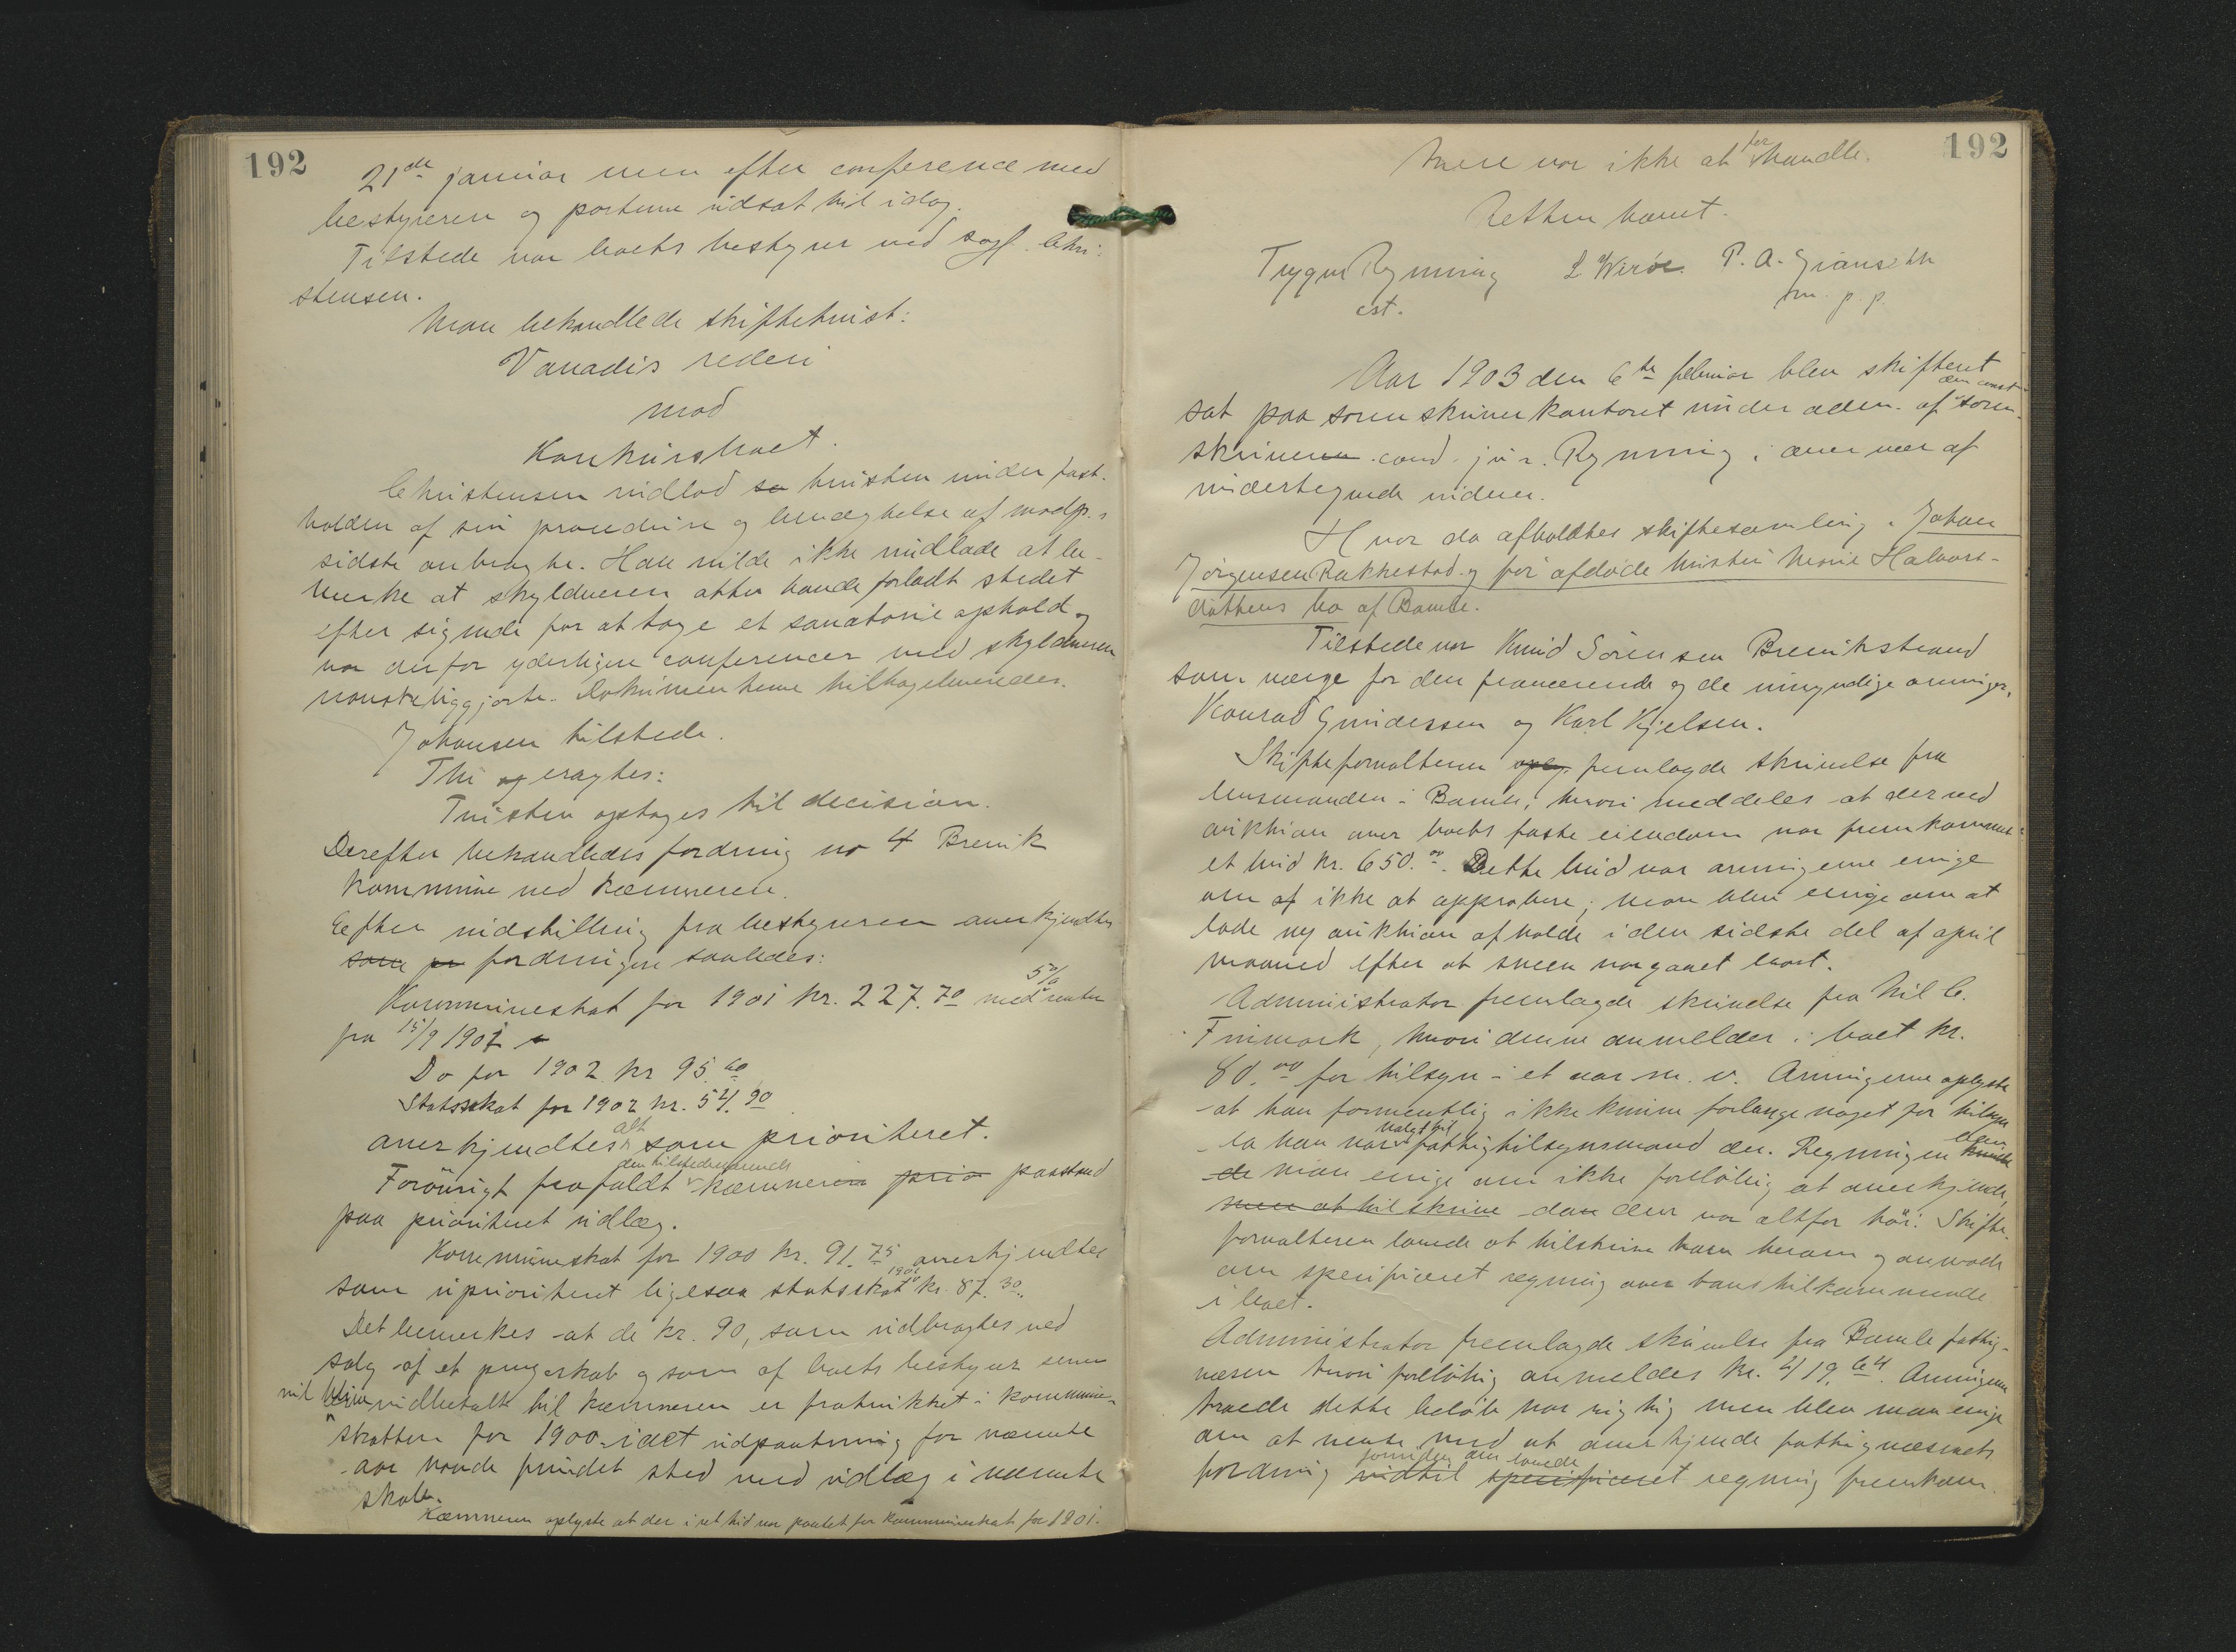 192
21de januar men efter conference med
bestyreren og parterne udsat til idag.
Tilstede var boets bestyrer ved sagf. Chri-
stensen.
Man behandlede skiftetvist:
Vanadis rederi
mod
Konkursboet.
Christensen indlod tvisten under fast-
holden af sin procedure og benægtelse af modp.s
sidste anbragte. Han vilde ikke undlade at be-
merke at skyldneren atter havde forladt stedet
efter sigende for at tage et sanatorie ophold og
var derfor yderligere conferencer med skyldneren
vanskeliggjorte. Dokumenterne tilbageleveredes.
Johansen tilstede.
Thi eragtes:
Tvisten optages til decision.
Derefter behandledes fordring no 4 Brevik
kommune ved kæmneren.
Efter indstilling fra bestyreren anerkjendtes
som fordringen saaledes:
Kommuneskat for 1901 kr. 227.70 med 5% renter
fra 15/9 1902
Do for 1902 kr 95.60
Statsskat for 1902 kr. 54.90
anerkjendtes alt som prioriteret.
Forøvrigt frafaldt den tilstedeværende kæmneren prio paastand
paa prioriteret udlæg.
Kommuneskat for 1900 kr. 91.75 anerkjendtes
som uprioriteret ligesaa statsskat 1901 kr. 87.30.
Det bemerkes at de kr. 90, som udbragtes ved
salg af et pengeskab og som af boets bestyrer senere
vil blive udbetalt til kæmneren er fratrukket i kommune-
skatten for 1900 idet udpantning for nævnte
aar havde fundet sted med udlæg i nævnte
skab.
Kæmneren oplyste at der i ret tid var pantet for kommuneskat for 1901.
192
Mere var ikke at forhandle.
Retten hævet.
Trygve Rynning L Wirøe. P. A.
cst. m. p. p.
Aar 1903 den 6te februar blev skifteret
sat paa sorenskriverkontoret under adm. af den const. soren-
skriver cand. jur. Rynning i overvær af
undertegnede vidner.
Hvor da afholdtes skiftesamling i Johan
Jørgensen Rakkestad og før afdøde hustru Marie Halvors-
datters bo af Bamle.
Tilstede var Knud Sørensen Brevikstrand
som værge for den fraværende og de umyndige arvinger,
Konrad Gundersen og Karl Kjelsen.
Skifteforvalteren opl. fremlagde skrivelse fra
lensmanden i Bamle, hvori meddeles at der ved
auktion over boets faste eiendom var fremkommet
et bud kr. 650.00. Dette bud var arvingerne enige
om af ikke at approbere; man blev enige om at
lade ny auktion afholde i den sidste del af april
maaned efter at sneen var gaaet bort.
Administrator fremlagde skrivelse fra Nil C.
Furmark, hvori denne anmelder i boet kr.
80.00 for tilsyn i et aar m. v. Arvingerne oplyste
at han formentlig ikke kunne forlange noget for tilsyn
da han var valgt til fattigtilsynsmand der. Regningen blev
de man enige om ikke foreløbig at anerkjende,
men at tilskrive da den var altfor høi. Skifte-
forvalteren lovede at tilskrive ham herom og anmode
om specificeret regning over hans tilkommende
i boet.
Administrator fremlagde skrivelse fra Bamle fattig-
væsen hvori foreløbig anmeldes kr. 419.64. Arvingerne
troede dette beløb var rigtig men blev man enige
om at vente med at anerkjende fattigvæsenets
fordring indtil forinden den lovede specificeret regning fremkom.